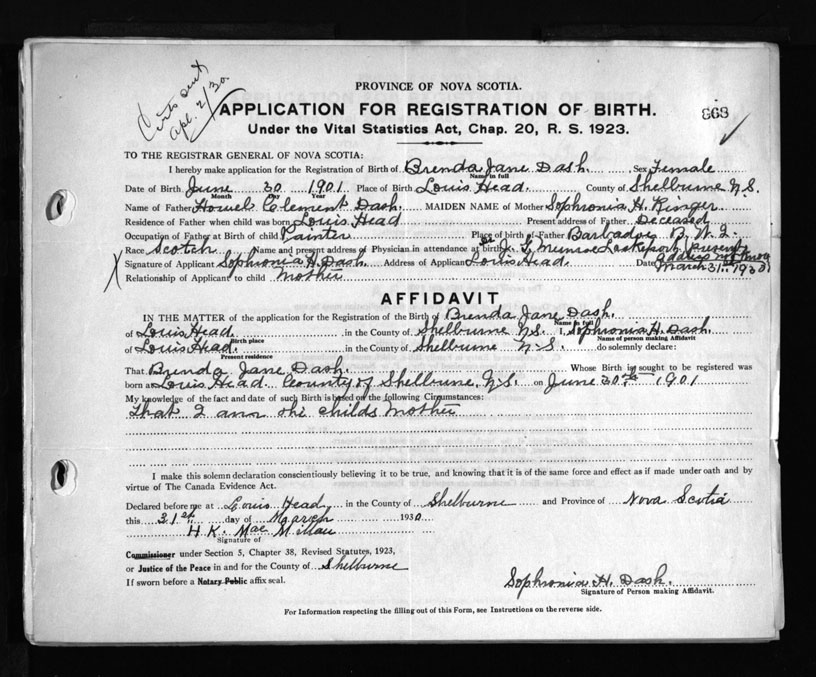 Certs sent
Apl. 2/30
PROVINCE OF NOVA SCOTIA.
APPLICATION FOR REGISTRATION OF BIRTH. 868
Under the Vital Statistics Act, Chap. 20, R. S. 1923.
TO THE REGISTRAR GENERAL OF NOVA SCOTIA:
I hereby make application for the Registration of Birth of Brenda Jane Dash. Sex Female
Name in full
Date of Birth June 30 1901 Place of Birth Louis Head. County of Shelburne N.S.
Month Day Year
Name of Father Howell Clement Dash. MAIDEN NAME of Mother Sophronia H. Ringer
Residence of Father when child was born Louis Head Present address of Father Deceased
Occupation of Father at Birth of child Painter Place of birth of Father Barbados B. W. I.
Race Scotch Name and present address of Physician in attendance at birth Dr J. G. Munroe Lockeport present
address not know
Signature of Applicant Sophronia H. Dash. Address of Applicant Louis Head. Date March 31st 1930
X Relationship of Applicant to child Mother
AFFIDAVIT
IN THE MATTER of the application for the Registration of the Birth of Brenda Jane Dash.
Name in full
of Louis Head. in the County of Shelburne N.S. I, Sophronia H. Dash.
Birth place Name of person making Affidavit
of Louis Head. in the County of Shelburne N.S. do solemnly declare:
Present residence
That Brenda Jane Dash. Whose Birth is sought to be registered was
born at Louis Head County of Shelburne, N.S. on June 30th 1901
My knowledge of the fact and date of such Birth is based on the following Circumstances:
That I am the childs Mother
I make this solemn declaration conscientiously believing it to be true, and knowing that it is of the same force and effect as if made under oath and by
virtue of The Canada Evidence Act.
Declared before me at Louis Head, in the County of Shelburne and Province of Nova Scotia
this 31st day of March 1930
H. K. Mac Millan
Signature of
Commissioner under Section 5, Chapter 38, Revised Statutes, 1923,
or Justice of the Peace in and for the County of Shelburne
If sworn before a Notary Public affix seal.
Sophronia H. Dash.
Signature of Person making Affidavit.
For Information respecting the filling out of this Form, see Instructions on the reverse side.